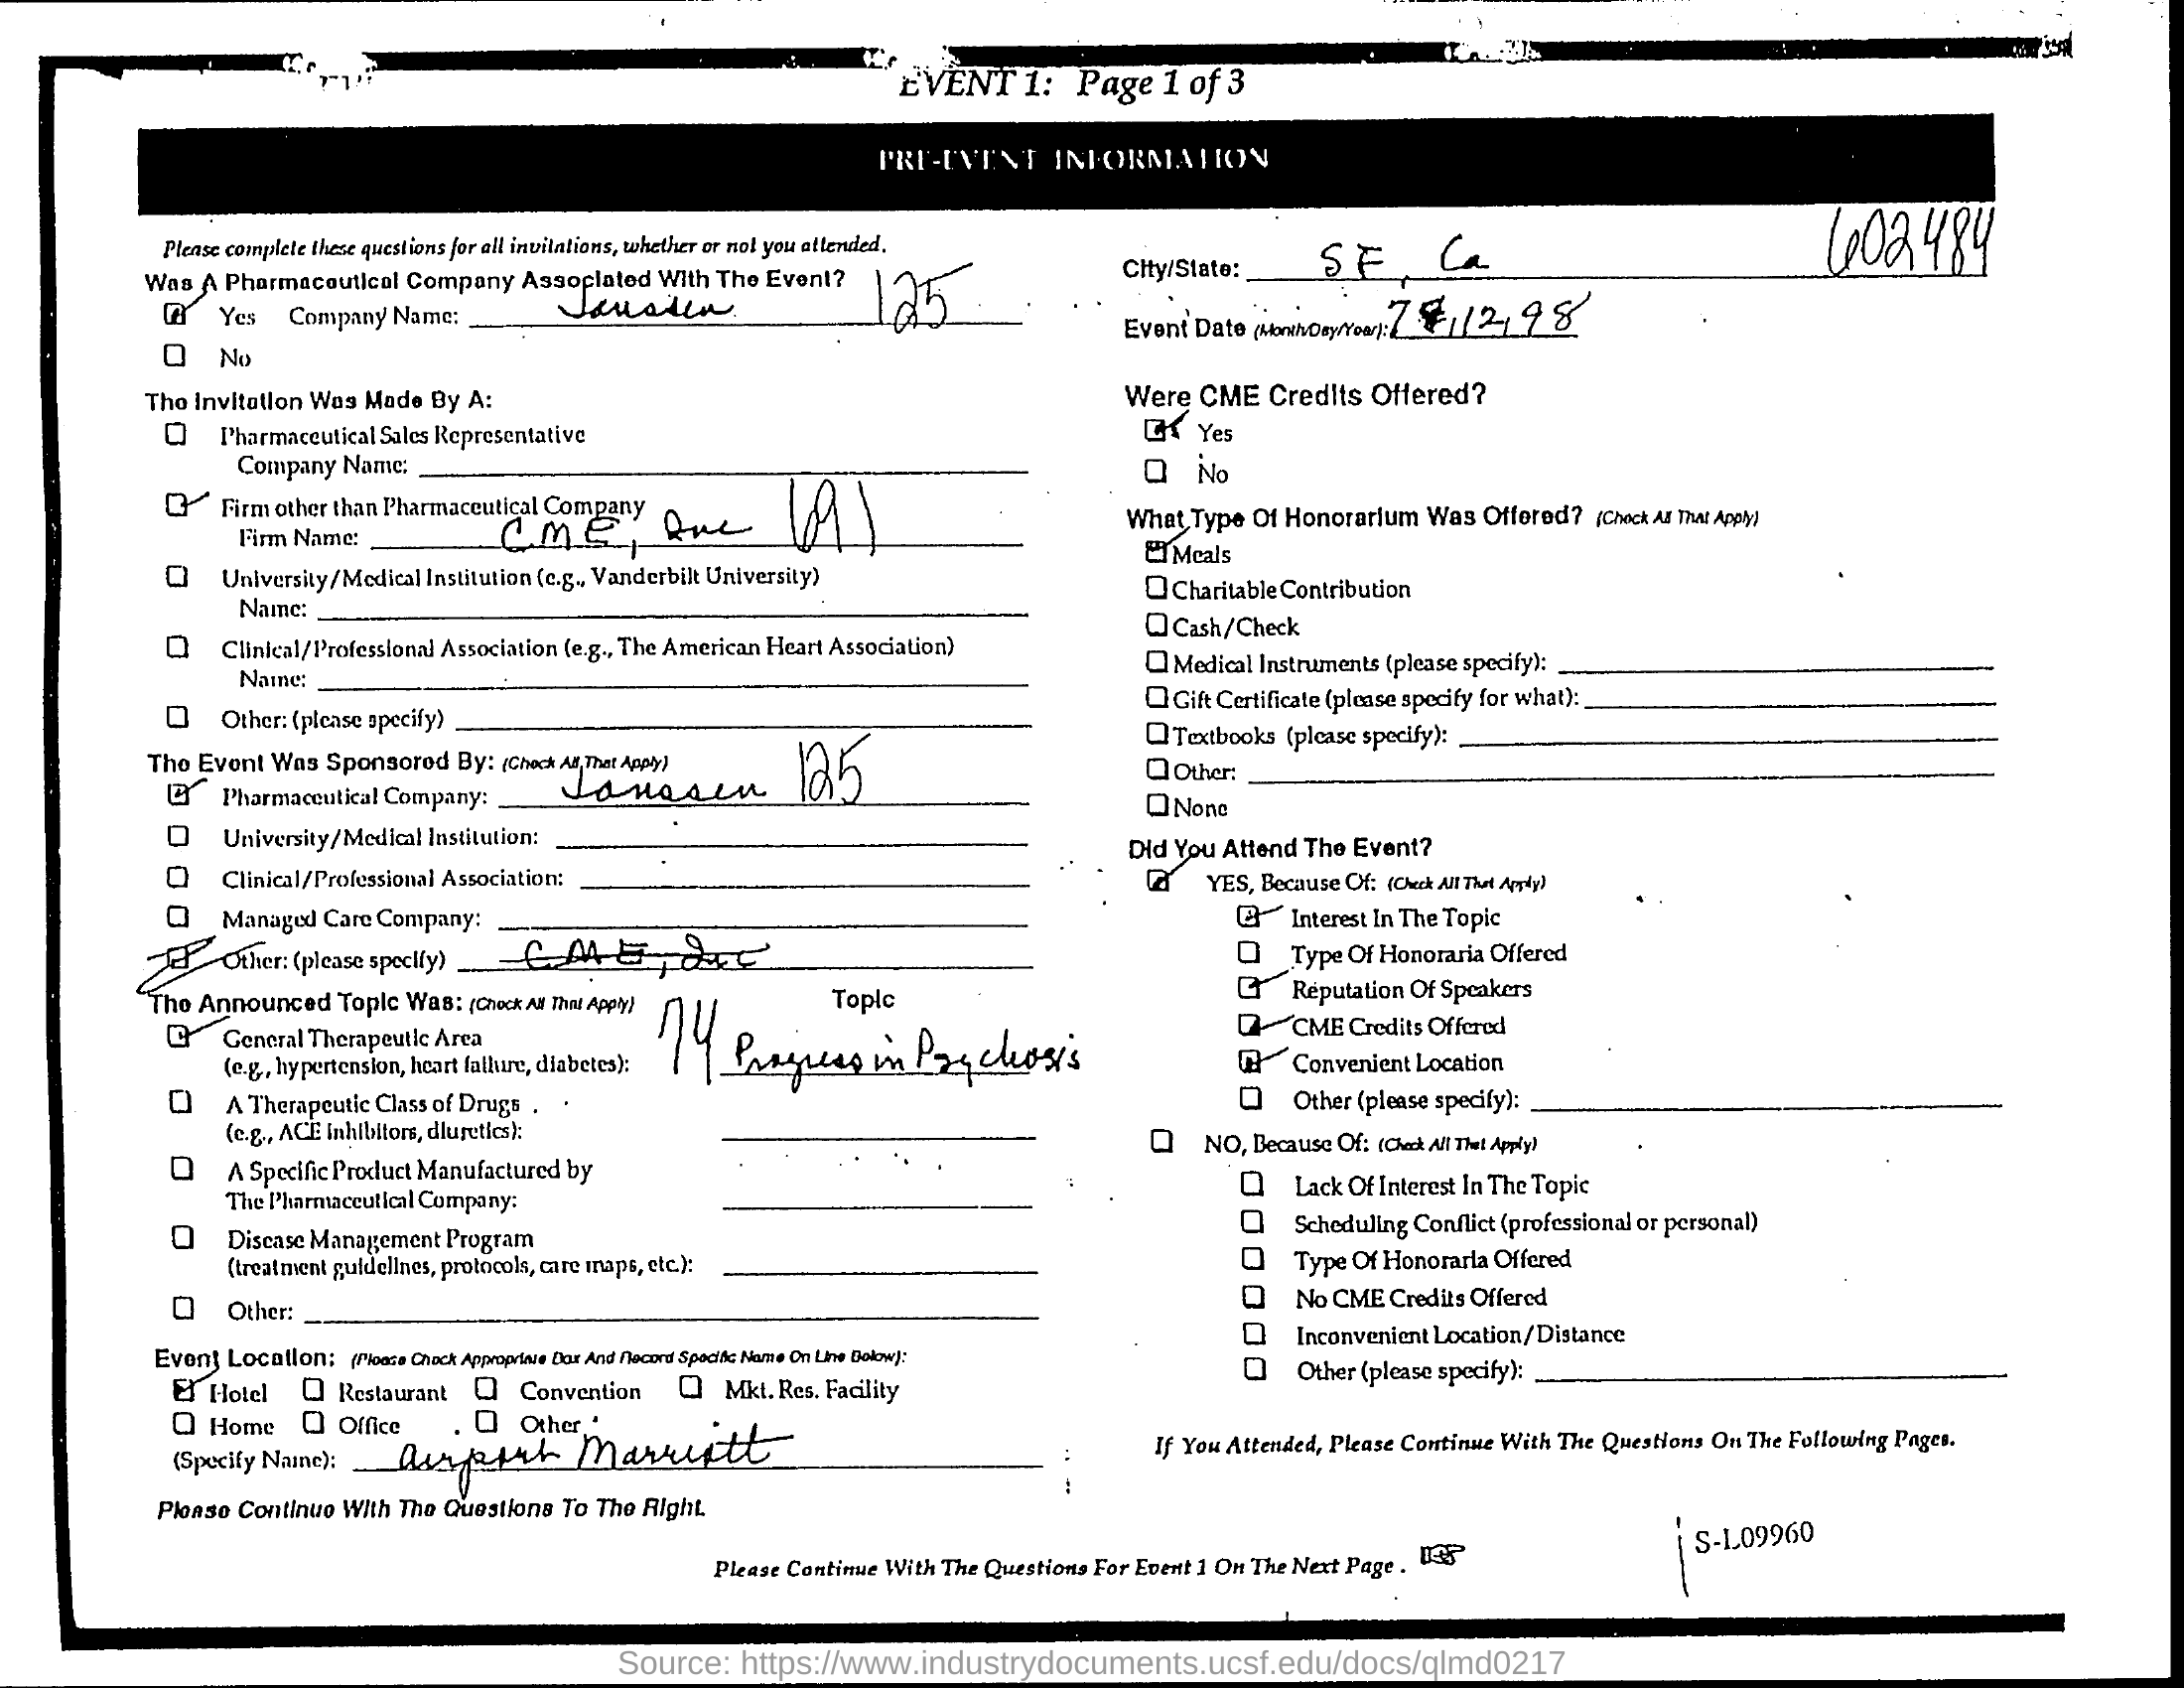 EVENT 1: Page 1 of 3
PRE-EVENT INFORMATION
Please complete these questions for all invitations, whether or not you attended.
Was A Pharmaceutical Company Associated With The Event?
Yes Company Name: Janssen 125
No
The Invitation Was Made By A:
Pharmaceutical Sales Representative
Company Name:
Firm other than Pharmaceutical Company
Firm Name: CME, Inc
University/Medical Institution (e.g., Vanderbilt University)
Name:
Clinical/Professional Association (e.g., The American Heart Association)
Name:
Other: (please specify)
The Event Was Sponsored By: (Check All That Apply)
Pharmaceutical Company: Janssen 125
University/Medical Institution:
Clinical/Professional Association:
Managed Care Company:
Other: (please specify) CME, Inc
The Announced Topic Was: (Check All That Apply) Topic
General Therapeutic Area
(e.g., hypertension, heart failure, diabetes): 74 Progress in Psychosis
A Therapeutic Class of Drugs
(e.g., ACE inhibitors, diuretics):
A Specific Product Manufactured by
The Pharmaceutical Company:
Disease Management Program
(treatment guidelines, protocols, care maps, etc.):
Other:
Event Location: (Please Check Appropriate Box And Record Specific Name On Line Below):
Hotel Restaurant Convention Mkt. Res. Facility
Home Office Other
(Specify Name): Airport Marriott
Please Continue With The Questions To The Right.
602484
City/State: SF, Ca
Event Date (Month/Day/Year): 7,12,98
Were CME Credits Offered?
Yes
No
What Type Of Honorarium Was Offered? (Check All That Apply)
Meals
Charitable Contribution
Cash/Check
Medical Instruments (please specify):
Gift Certificate (please specify for what):
Textbooks (please specify):
Other:
None
Did You Attend The Event?
YES, Because Of: (Check All That Apply)
Interest In The Topic
Type Of Honoraria Offered
Reputation Of Speakers
CME Credits Offered
Convenient Location
Other (please specify):
NO, Because Of: (Check All That Apply)
Lack Of Interest In The Topic
Scheduling Conflict (professional or personal)
Type Of Honoraria Offered
No CME Credits Offered
Inconvenient Location/Distance
Other (please specify):
If You Attended, Please Continue With The Questions On The Following Pages.
Please Continue With The Questions For Event 1 On The Next Page.
S-L09960
Source: https://www.industrydocuments.ucsf.edu/docs/qlmd0217